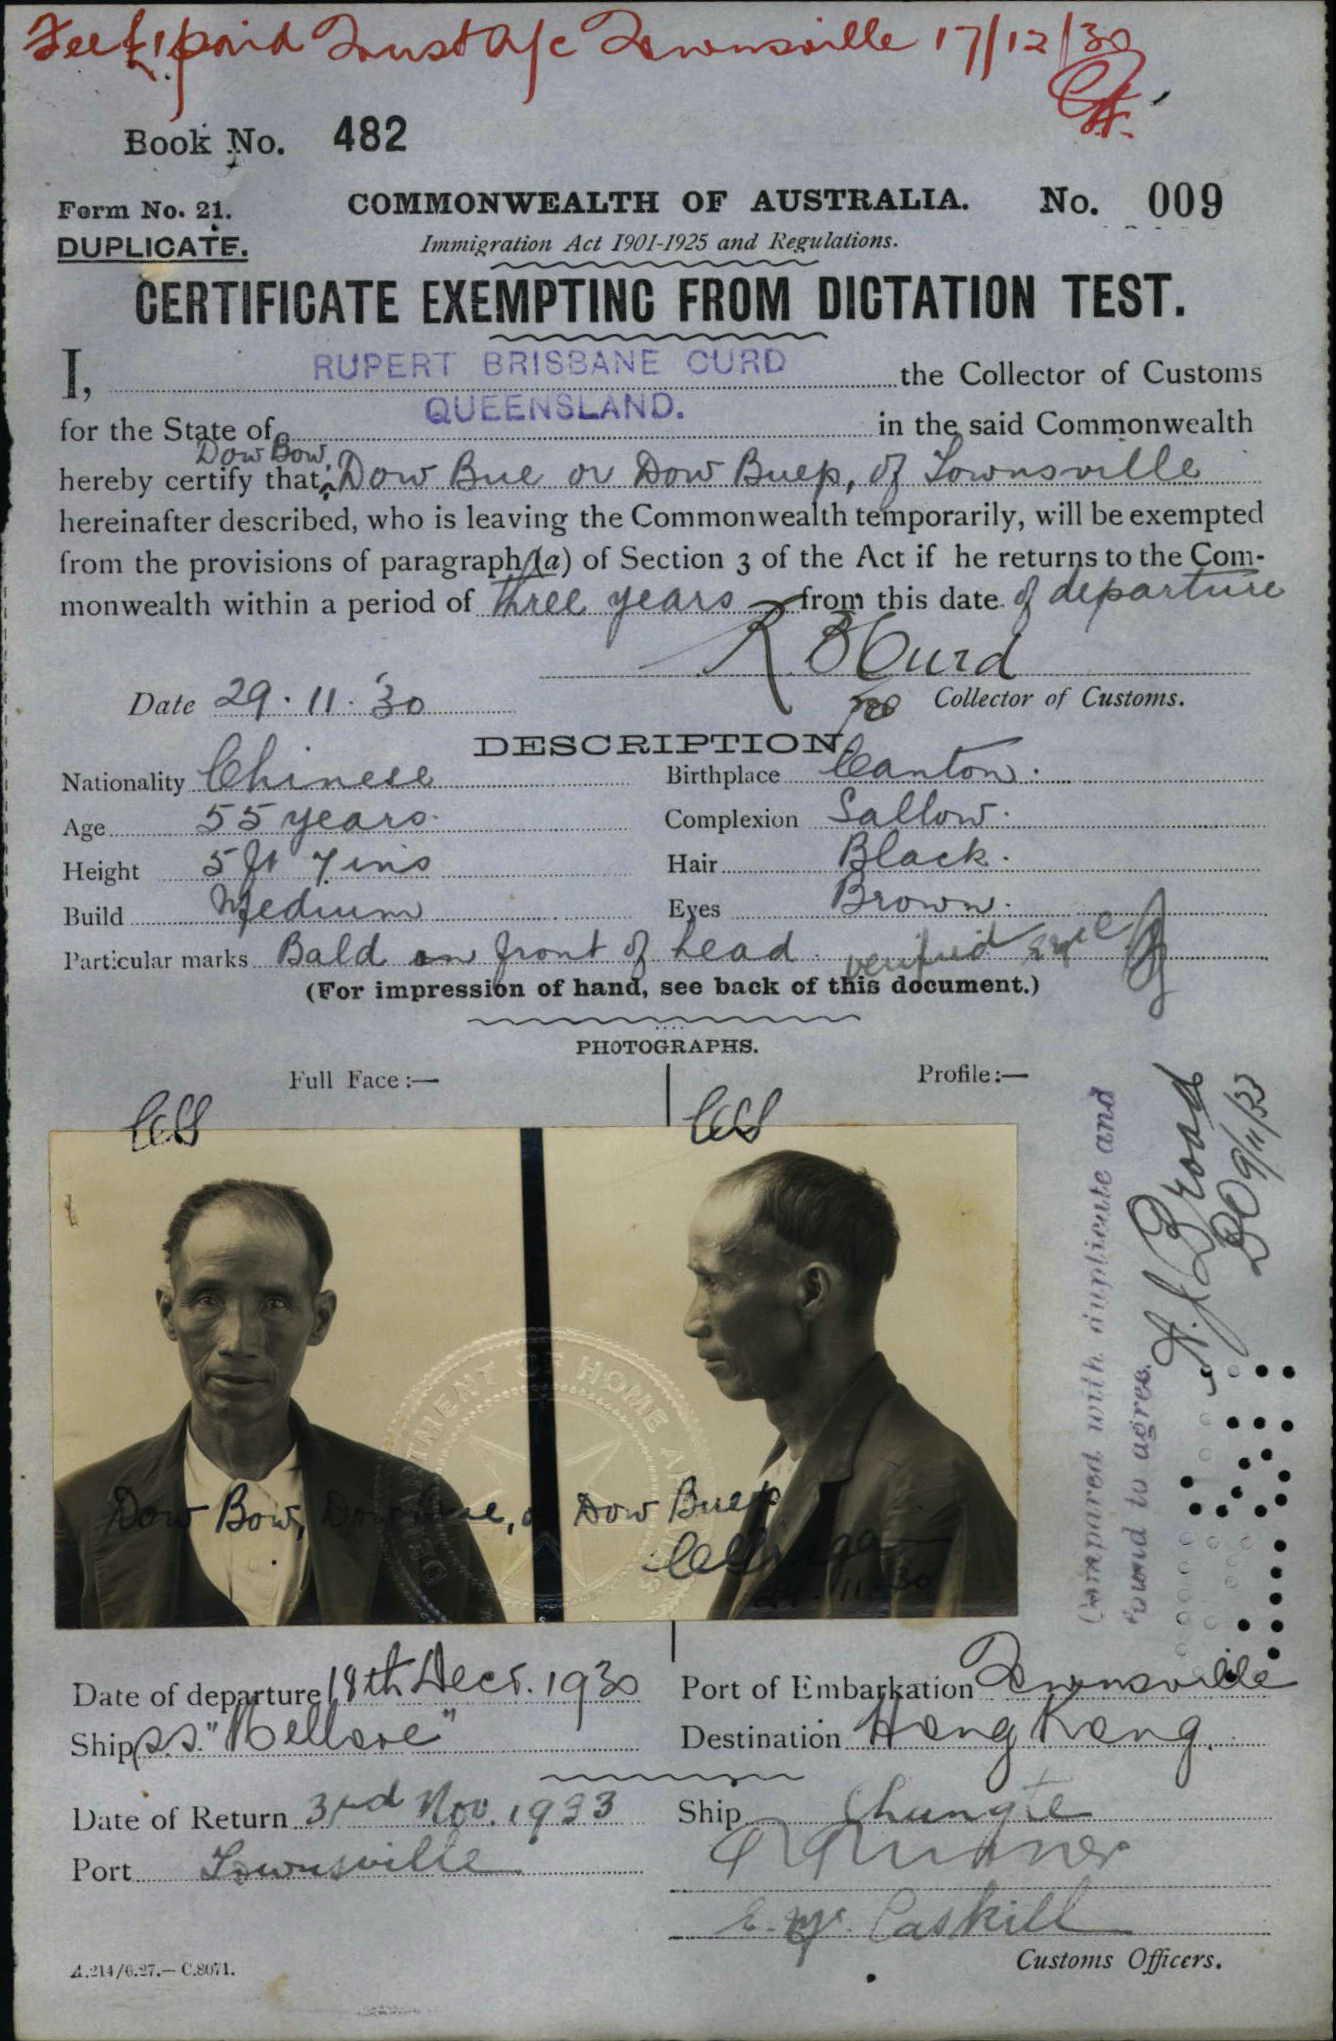 Fee £1 paid Trust A/c Townsville 17/12/30
Book No. 482
Form No. 21. COMMONWEALTH OF AUSTRALIA. No. 009
DUPLICATE. Immigration Act 1901-1925 and Regulations.
CERTIFICATE EXEMPTING FROM DICTATION TEST.
I, RUPERT BRISBANE CURD the Collector of Customs
for the State of QUEENSLAND. in the said Commonwealth
Dow Bow,
hereby certify that Dow Bue or Dow Buep, of Townsville
hereinafter described, who is leaving the Commonwealth temporarily, will be exempted
from the provisions of paragraph (a) of Section 3 of the Act if he returns to the Com-
monwealth within a period of three years from this date of departure
R B Curd
Date 29.11.'30 Collector of Customs.
DESCRIPTION.
Nationality Chinese Birthplace Canton.
Age 55 years. Complexion Sallow.
Height 5 ft 7 ins Hair Black.
Build Medium Eyes Brown.
Particular marks Bald on front of head. verified
(For impression of hand, see back of this document.)
PHOTOGRAPHS.
Full Face:— Profile:—
DEPARTMENT OF HOME AFFAIRS
Dow Bow, Dow Bue, or Dow Buep
Compared with duplicate and
found to agree.
A. J. Broad
9/11/33
Date of departure 18th Decr. 1930 Port of Embarkation Townsville
Ship s.s. "Nellore" Destination Hong Kong.
Date of Return 3rd Nov. 1933 Ship Changte
Port Townsville
E. Mc. Caskill
Customs Officers.
A.214/6.27.— C.8071.